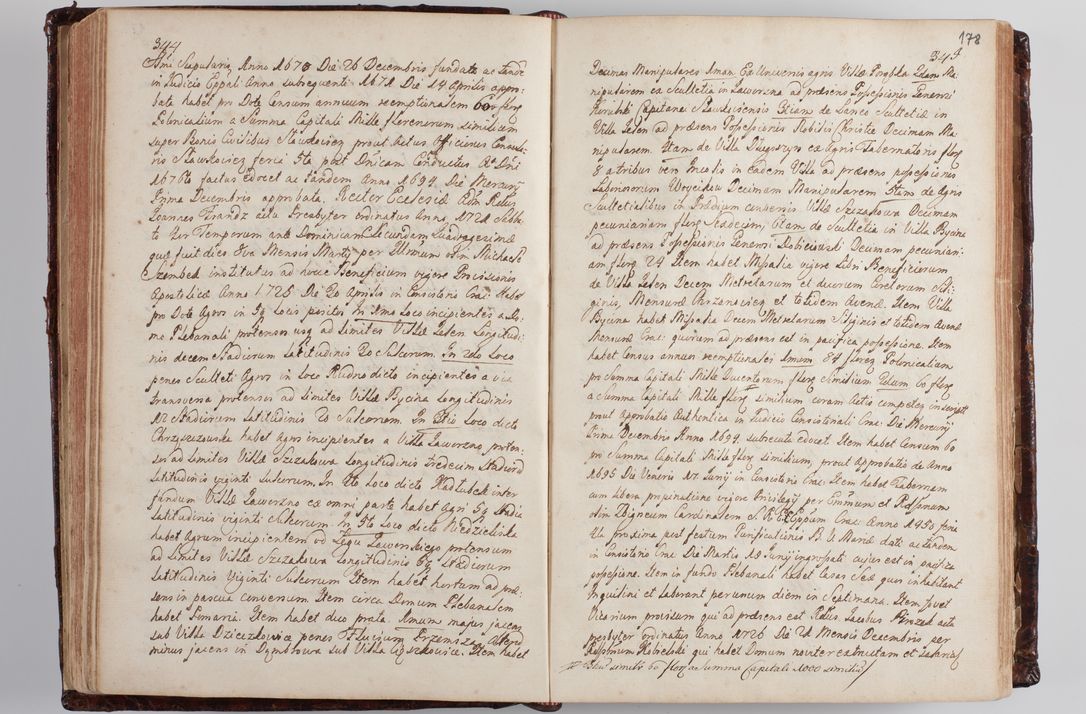 344
Smi Scapularis Anno 1670 Die 26 Decembris fundata ac tande
in Judicio Eppali Anno subsequenti 1671 Die 14 Aprilis appro-
bata habet pro Dote Censum annuum reemptionalem 60 flor
Polonicalium a Summa Capitali Mille florenorum similium
super Bonis Civilibus Slawkoviæ prout Actus Officiosus Consula-
ris Slawkoviæ feria 5ta post Dnicam Conductus Pa Dni
1676to factus edocet ac tandem Anno 1694 Die Mercurij
Prima Decembris approbata, Rector Ecclesiæ Adm Rndus
Joannes Frandz
Presbyter ordinatus Anno 1721 Sabba-
to Quatuor Temporum ante Dominicam Secundam Quadragesimæ
quæ fuit dies 8va Mensis Martij per Illmum olim Michaelem
Szembek institutus ad hocce Beneficium vigore Provisionis
Apostolicæ Anno 1725 Die 20 Aprilis in Consistorio Crac: Habet
pro Dote Agros in 5q Locis positos In Imo Loco incipientes a Do-
mo Plebanali protensos usq ad Limites Villæ Jelen Longitudi-
nis decem Stadiorum Latitudinis 20 Sulcorum. In 2do Loco
penes Sculteti Agros in Loco Rudno dicto incipientes a via
transversa protensos ad Limites Villæ Byczina Longitudinis
12 Stadiorum Latitudinis 20 Sulcorum. In 3tio Loco dicto
Chrząszczowska habet Agros incipientes a Villa Jaworzno proten-
sos ad Limites Villæ Szczakowa Longitudinis tredecim Stadiorū
Latitudinis viginti Sulcorum. In 4to Loco dicto Kadlubek inter
fundum Villæ Jaworzno ex omni parte habet Agri 5q Stadia
Latitudinis viginti Sulcorum. In 5to Loco dicto Niedzieliska
habet Agrum incipientem od Łęgu Jaworskiego protensum
ad Limites Villæ Szczakowa Longitudinis 6q Stadiorum
Latitudinis Viginti Sulcorum Item habet hortum ad præ-
sens in pascua conversum Item circa Domum Plebanalem
habet Pomaria. Item habet duo prata Imum majus jacens
sub Villa Dziećkowice penes Fluvium Przemsza, Alterū
minus jacens in Dąmbrowa sub Villa Ciężkowice. Item habet
178
345
Decimas Manipulares Imam Ex Universis agris Villæ Poręba 2dam Ma-
nipularem ex Scultetia in Jaworzno ad præsens Possessionis Generosi
Capitanei Slawkoviensis 3tiam de Sanco Scultetiæ in
Villa Jelen ad præsens Possessionis Nobilis Christiæ Decimam Ma-
nipularem. 4tam de Villa Długoszyn ex Agris Tabernatoris florq
8 a tribus vero Incolis in eadem Villa ad præsens possessionis
Laboriosorum Woyciekow Decimam Manipularem 5tam de Agris
Scultetialibus in Prædium conversis Villæ Szczakowa Decimam
pecuniariam florq Sedecim, 6tam de Scultetia in Villa Byczina
ad præsens Possessionis Generosi Dobieciowski Decimam pecuniari-
am florq 24 Item habet Missalia vigore Libri Beneficiorum
de Villa Jelen Decem Metretarum et duorum Coretorum Sili-
ginis, Mensuræ Chrzanoviens et totidem Avenæ. Item Villa
Byczina habet Missalia Decem Metretarum Siliginis et totidem Avenæ
Mensuræ Crac: quorum ad præsens est in pacifica possessione. Item
habet Census annuos reemptionales Imum 84 florq Polonicalium
pro Summa Capitali Mille Ducentorum florq Similium 2dum 60 florq
a Summa Capitali Mille florq similium coram Actis competes inscript
prout Approbatio Authentica in Judicio Consistoriali Crac: Die Mercurij
Prima Decembris Anno 1694 subsecuta edocet. Item habet Censum 60
pro Summa Capitali Mille florq similium, prout Approbatio de Anno
1695 Die Veneris 17 Junij in Consistorio Crac: Item habet Tabernam
cum libera propinatione vigore Privilegij per Emmum et Rssmum
olim Zbigneum Cardinalem S.R.E. Eppum Crac: Anno 1450 feria
4ta proxima post festum Purificationis B. V. Mariæ dati ac tandem
in Consistorio Crac Die Martis 10 Junij ingrossati cujus est in pacifica
possessione. Item in fundo Plebanali habet Casas Sex quas inhabitant
Inquilini et laborant per unum diem in Septimana. Item fovet
Vicarium provisum qui ad præsens est Rdus Jacobus Pinzek actu
presbyter ordinatus Anno 1726 Die 21 Mensis Decembris per
Rssmum Kobielski qui habet Domum noviter extructam et Salariū
similiū 60 florq a Summa Capitali 1000 similiū